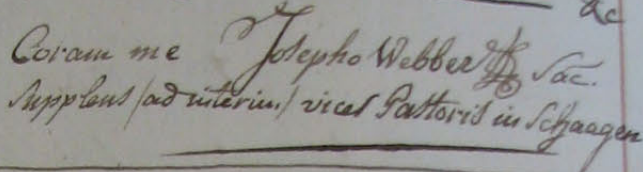 &c
Coram me Josepho Webber Sac.
supplens /ad interim/ vices Pastoris in Schaagen